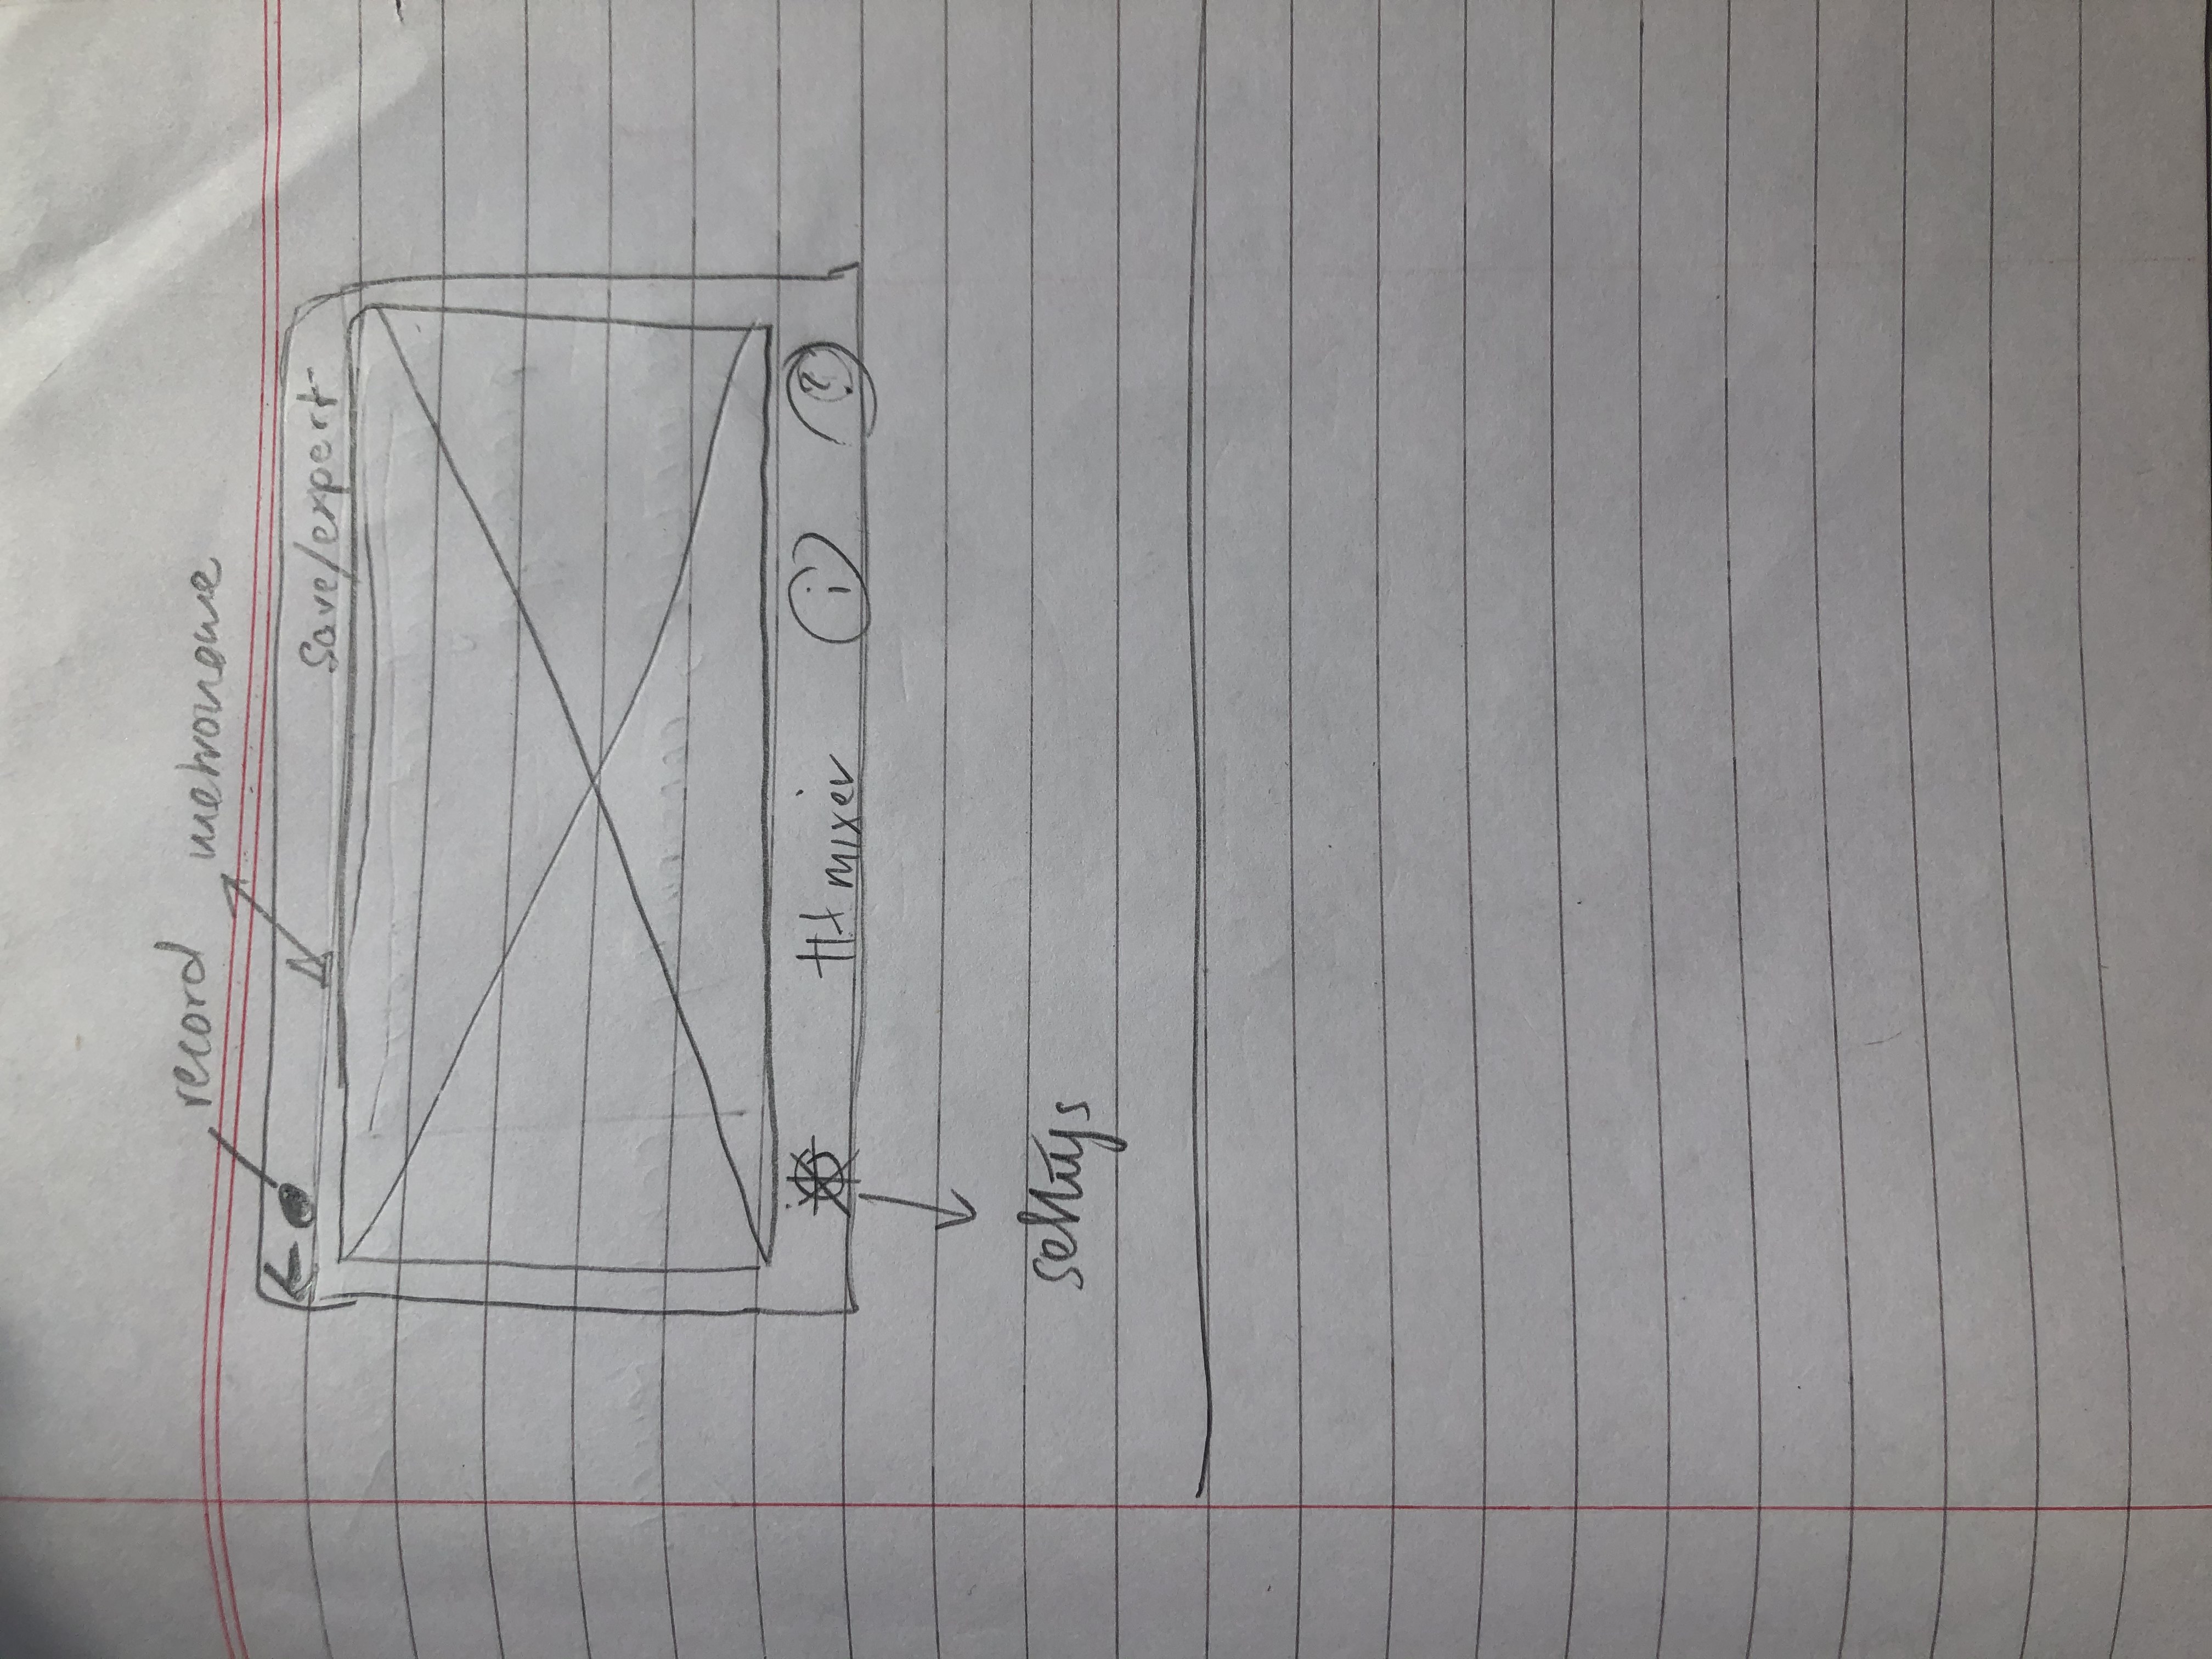 record metronome
Save/expert
mixer i ?
settings